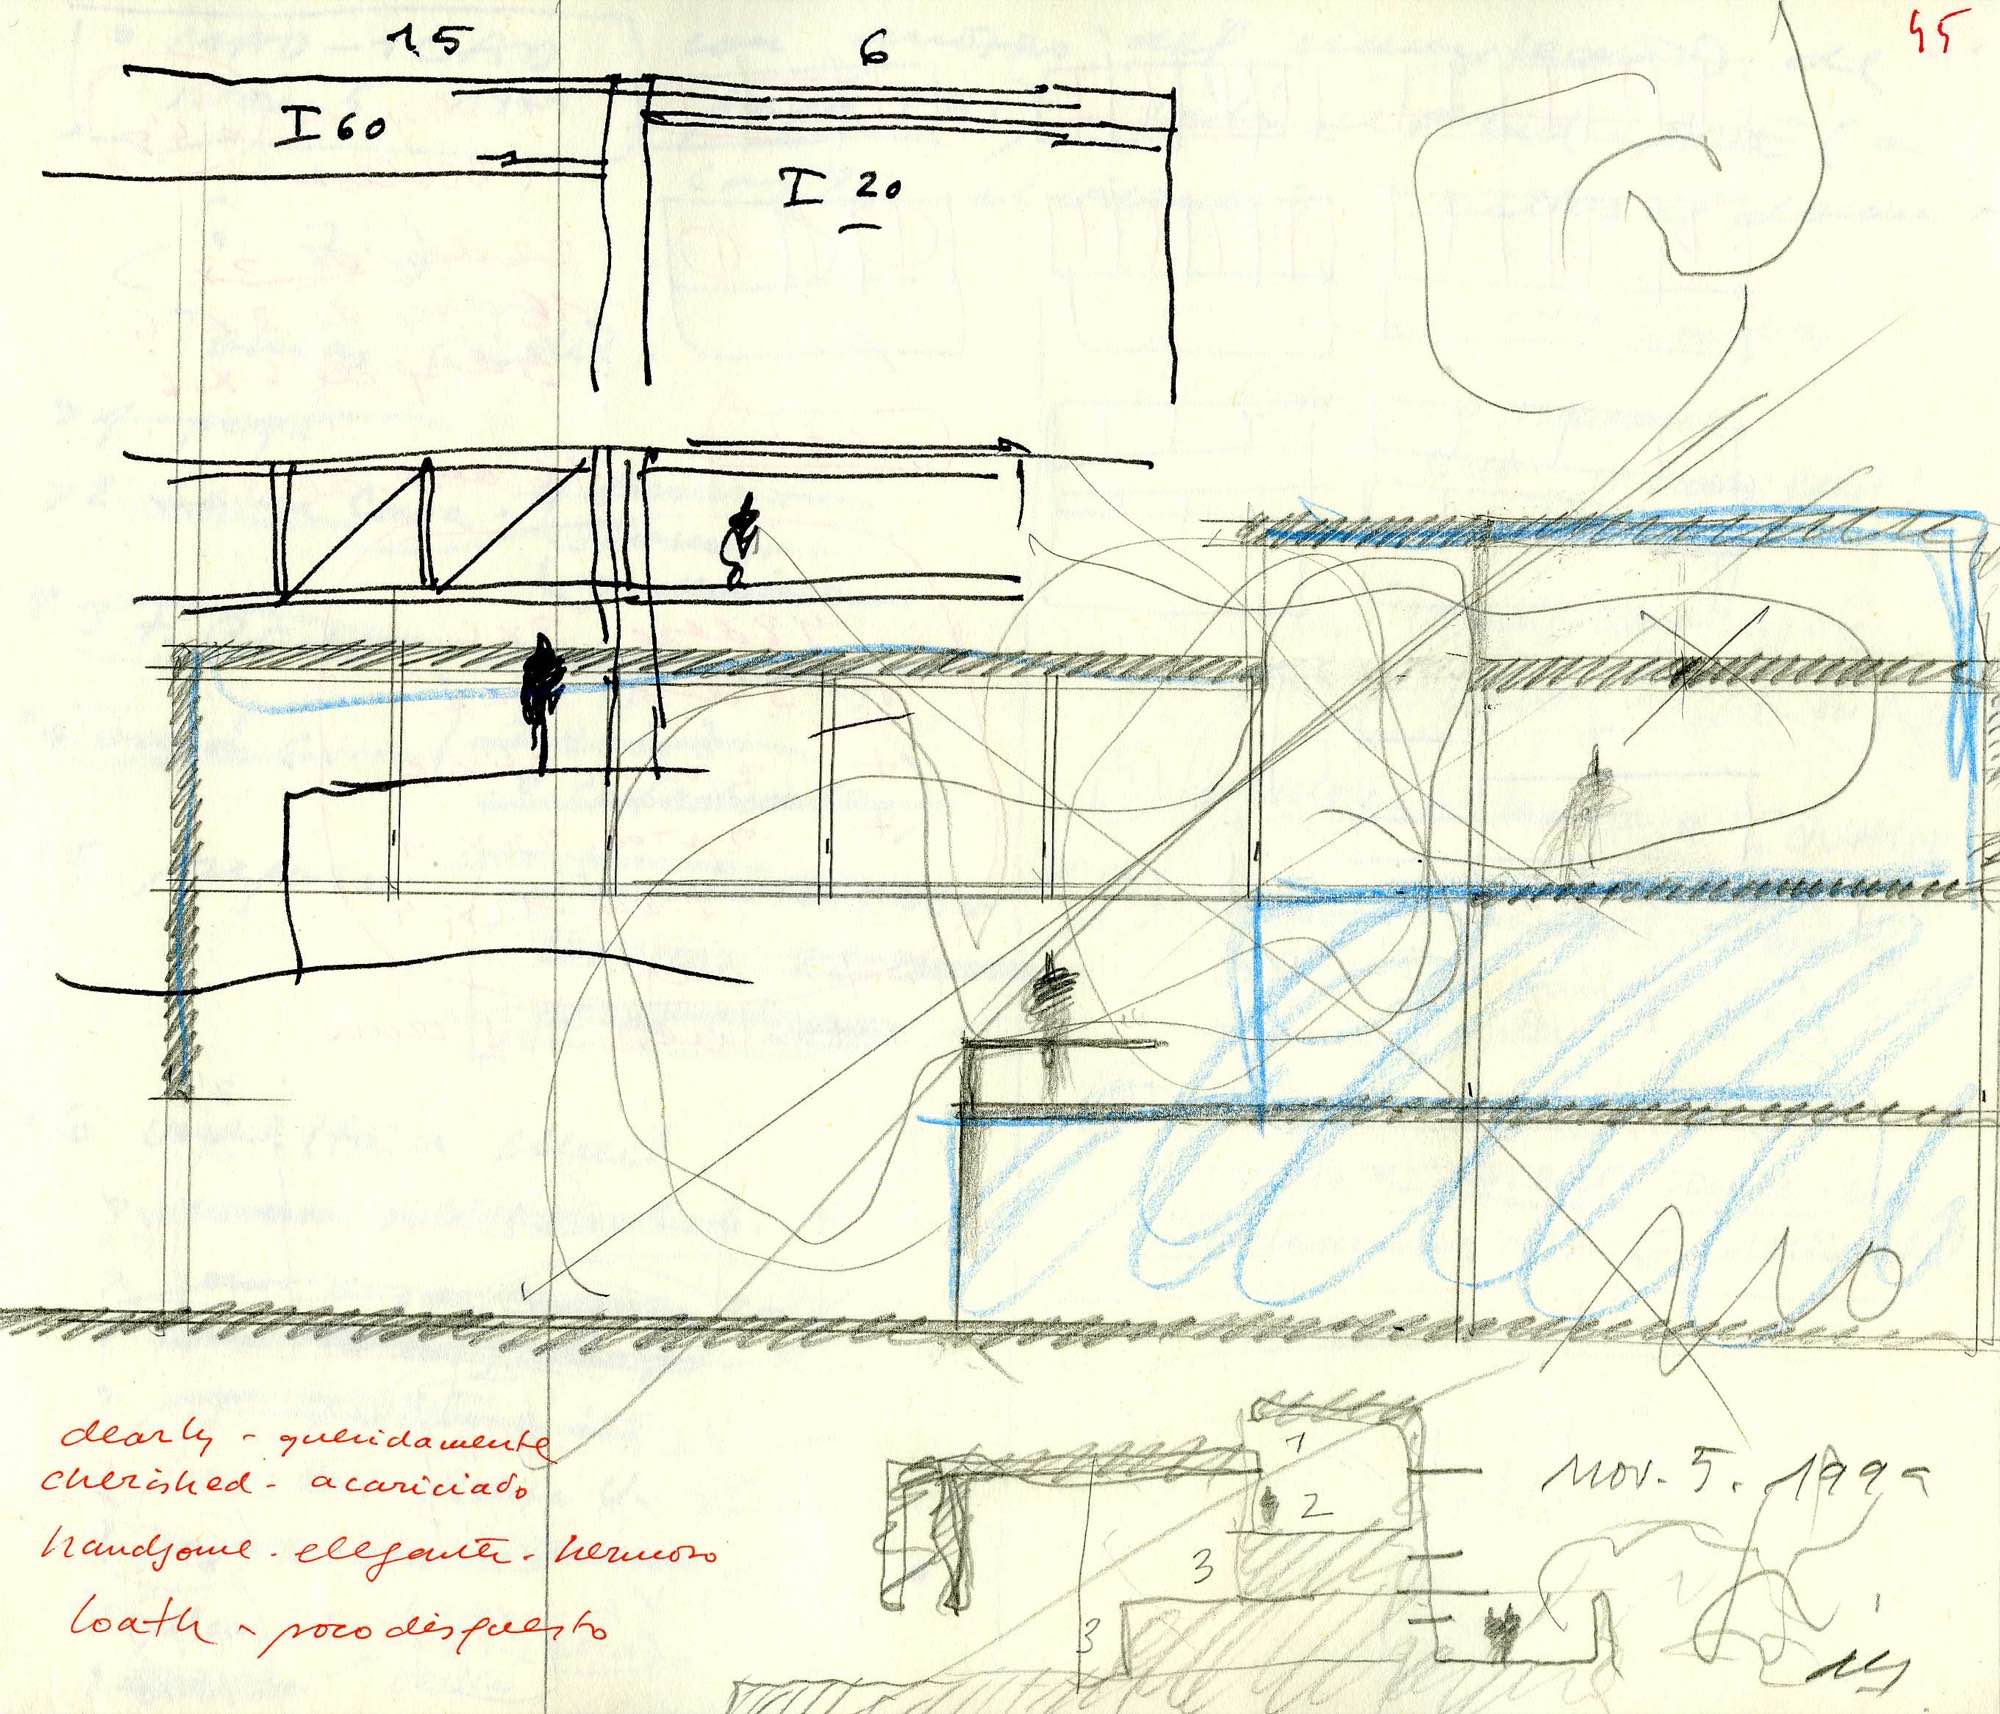 45
15
6
I 60
I 20
NO
dearly - queridamente
cherished - acariciado
handsome - elegante - hermoso
loath - poco dispuesto
1
2
3
3
Nov. 5. 199